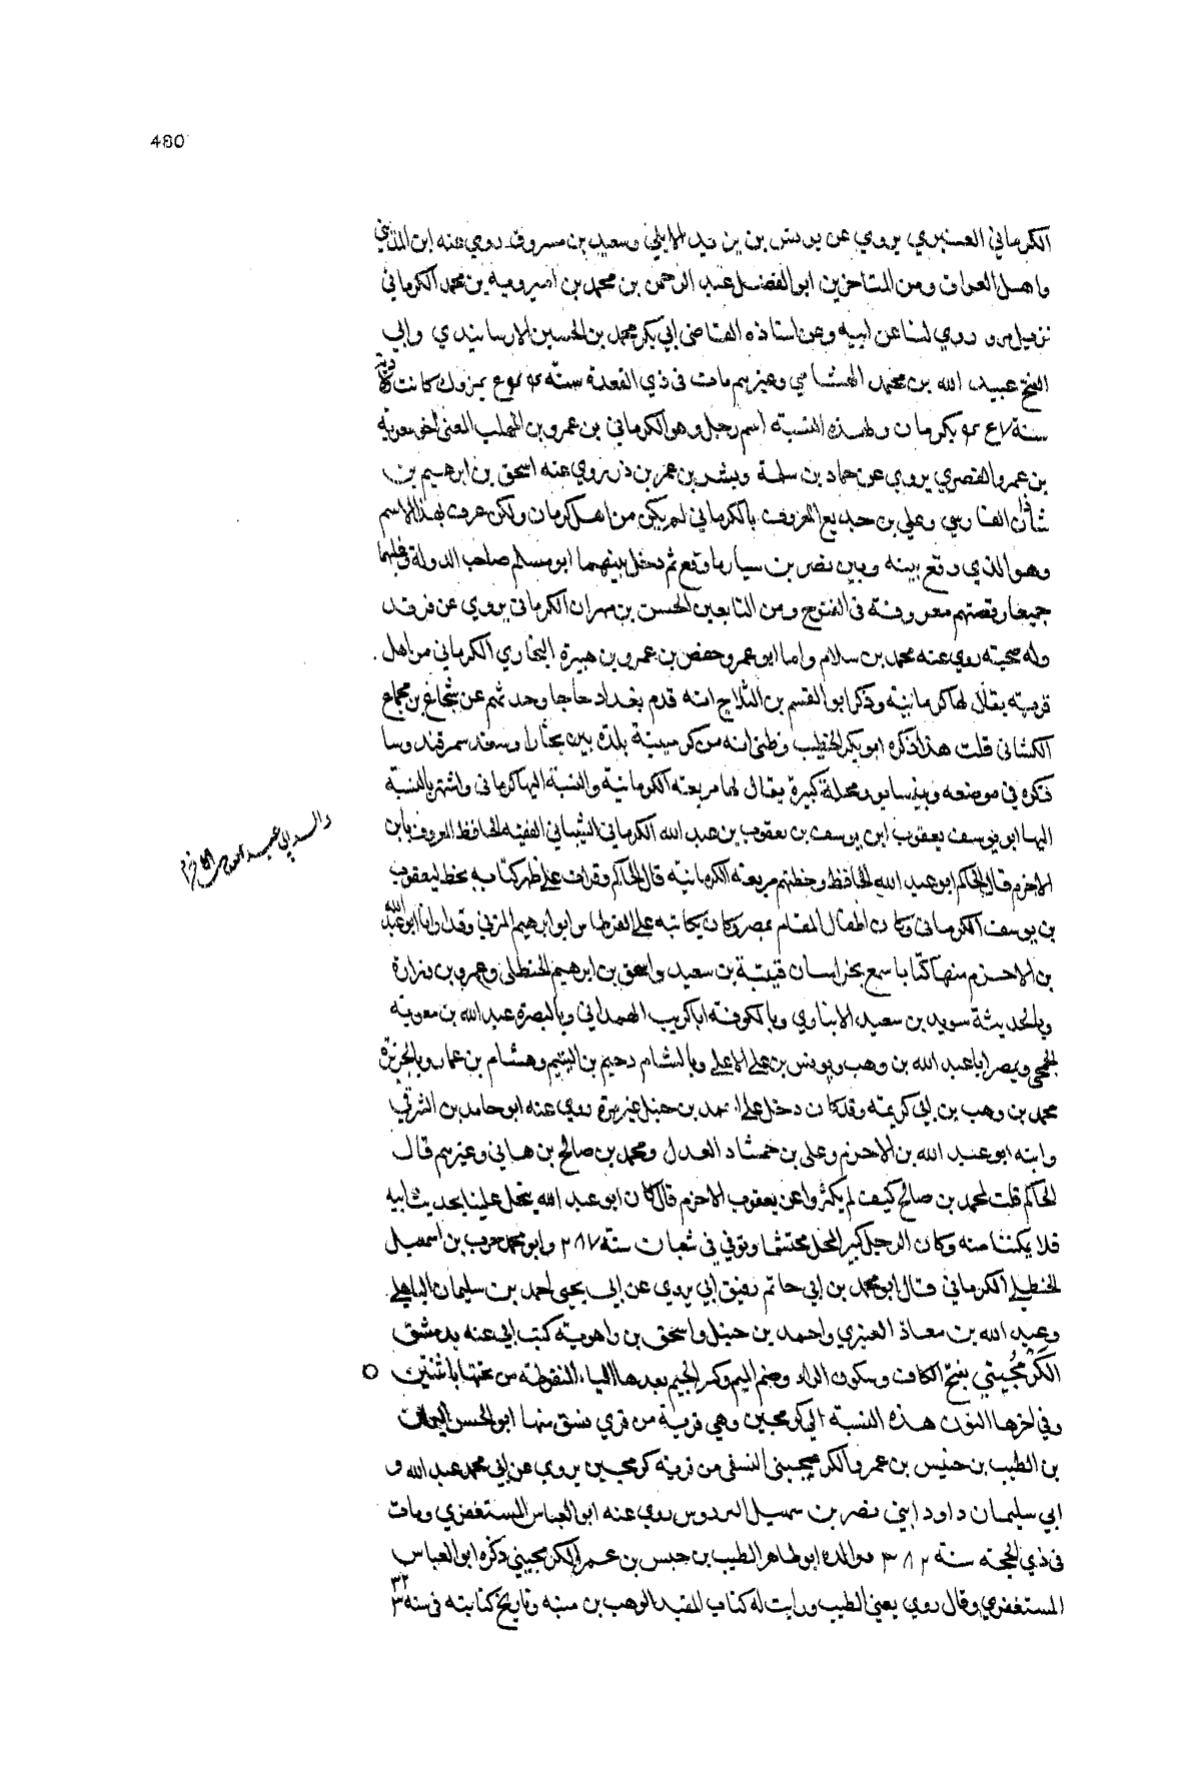 480
الكرماني العنبري يروي عن يونس بن يزيد الايلي وسعيد بن مسروق روي عنه ابن المديني
واهل العراق ومن المتاخرين ابو الفضل عبد الرحمن بن محمد بن اميرويه بن محمد الكرماني
نزيل مرو روي لنا عن ابيه وعن استاذه القاضي ابي بكر محمد بن الحسين الارسابندي وابي
الفتح عبيد الله بن محمد الهشامي وغيرهم مات في ذي القعدة سنة بمرو وكانت ولادته
سنة بكرمان ولهذه النسبة اسم رجل وهو الكرماني بن عمرو بن المهلب المعنى اخو معوية
بن عمرو القصري يروي عن حماد بن سلمة وبشر بن عمر بن ذر روي عنه اسحق بن ابرهيم بن
شاذان الفارسي وعلي بن جديع المعروف بالكرماني لم يكن من اهل كرمان ولكن عرف بهذا الاسم
وهو الذي وقع بينه وبين نصر بن سيار ما وقع ثم دخل بينهما ابو مسلم صاحب الدولة
جميعا وقصتهم معروفة في الفتوح ومن التابعين الحسن بن مهران الكرماني يروي عن فرقد
وله صحبته روي عنه محمد بن سلام واما ابو عمرو حفص بن عمرو بن هبيرة البخاري الكرماني من اهل
قرية يقال لها كرمانية وذكر ابو القسم بن الثلاج انه قدم بغداد حاجا وحدثهم عن شجاع بن مجاع
الكشاني قلت هذا ذكره ابو بكر الخطيب وظني انه من كرمينية بلدة بين بخارا وسغد سمرقند وسا
ذكره في موضعه وبنيسابور محلة كبيرة يقال لها مربعة الكرمانية والنسبة اليها كرماني واشتهر بالنسبة
اليها ابو يوسف يعقوب ابن يوسف بن يعقوب بن عبد الله الكرماني الشيباني الفقيه الحافظ المعروف بابن
والد ابي عبد الله بن الاخرم
الاخرم قال الحاكم ابو عبد الله الحافظ وخطتهم مربعة الكرمانية قال الحاكم وقرات على ظهر كتاب بخط ليعقوب
بن يوسف الكرماني وكان اطال المقام بمصر وكان يكاتبه على القرطاس ابو ابرهيم المزني وقد ارانا ابو عبد الله
بن الاخرم منها كتابا سمع بخراسان قتيبة بن سعيد واسحق بن ابرهيم الحنظلي وعمرو بن زرارة
وبالحديثة سويد بن سعيد الانباري وبالكوفة ابا كريب الهمداني وبالبصرة عبد الله بن معوية
الجمحي وبمصر ابا عبد الله بن وهب ويونس بن علي الاعلي وبالشام دحيم بن اليتيم وهشام بن عمار وبالجزيرة
محمد بن وهب بن ابي كريمة وقد كان دخل على احمد بن حنبل غير مرة روي عنه ابو حامد بن الشرقي
وابنه ابو عبد الله بن الاخرم وعلي بن حمشاد العدل ومحمد بن صالح بن هاني وغيرهم قال
الحاكم قلت لمحمد بن صالح كيف لم يكثروا عن يعقوب الاخرم قال كان ابو عبد الله يبخل علينا بحديث ابيه
فلا يمكننا منه وكان الرجل كبير المحل محتشما وتوفي في شعبان سنة ٢٨٧ وابو محمد حرب بن اسمعيل
الحنظلي الكرماني قال ابو محمد بن ابي حاتم رفيق ابي يروي عن ابي يحيى احمد بن سليمان الباهلي
وعبيد الله بن معاذ العنبري واحمد بن حنبل واسحق بن راهوية كتب ابي عنه بدمشق
الكَرْمُجِيني بفتح الكاف وسكون الراء وضم الميم وكسر الجيم بعدها الياء المنقوطة من تحتها باثنتين
وفي اخرها النون هذه النسبة الي كرمجين وهي قرية من قري نسق منها ابو الحسن اليمان
بن الطيب بن خنيس بن عمرو الكرمجيني النسفي من قرية كرمجين يروي عن ابي محمد عبد الله و
ابي سليمان داود ابني نصر بن سهيل البزدوس روي عنه ابو العباس المستغفري ومات
في ذي الحجة سنة ٣٨٢ ووالده ابو طاهر الطيب بن خنيس بن عمرو الكرمجيني ذكره ابو العباس
المستغفري وقال روي يعني الطيب ورايت له كتاب المقيد الوهب بن منبه وتاريخ كتابته في سنة